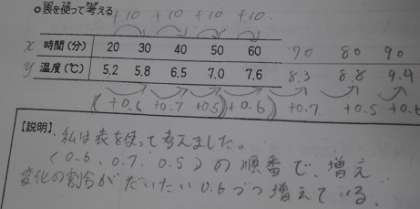 ○表を使って考える
+10 +10 +10 +10
x 時間(分) 20 30 40 50 60 70 80 90
y 温度(℃) 5.2 5.8 6.5 7.0 7.6 8.3 8.8 9.4
(+0.6 +0.7 +0.5)(+0.6) +0.7 +0.5 +0.6
[説明]
私は表を使って考えました。
(0.6、0.7、0.5)の順番で、増え
変化の割合がだいたい0.6づつ増えている。